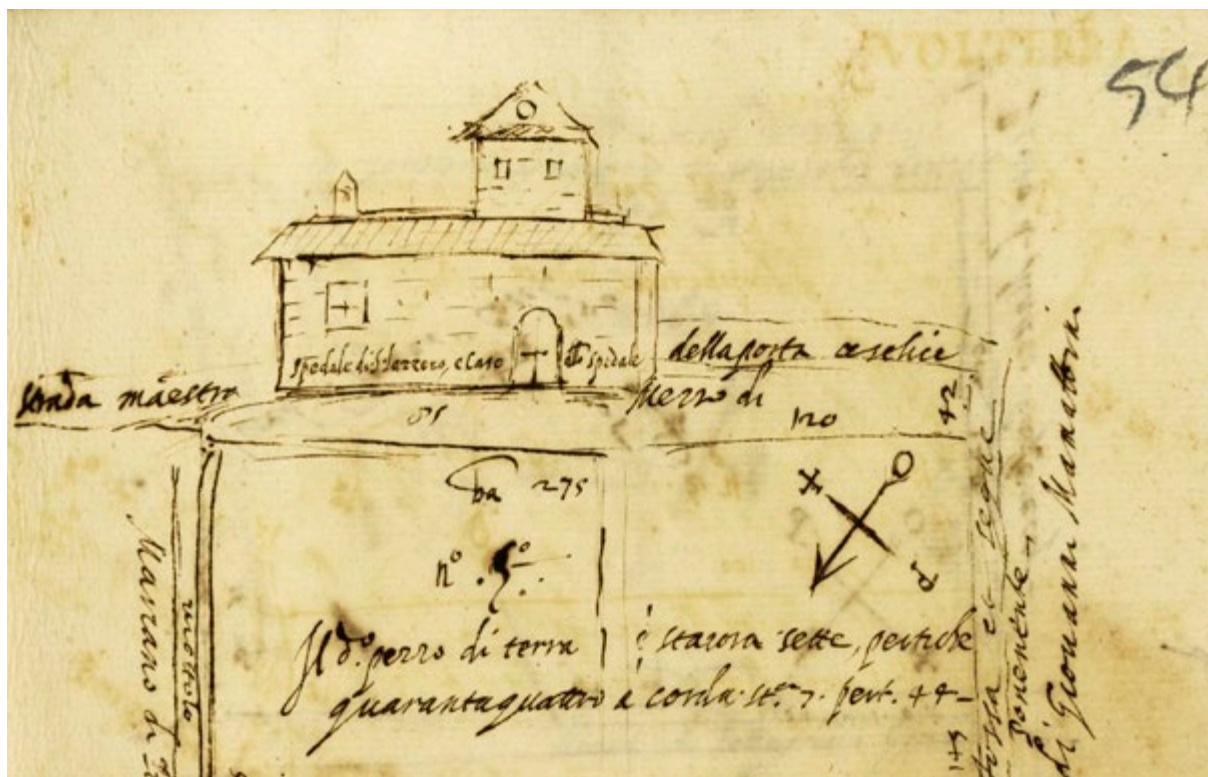 54
spedale di S Lazzero, e case
spedale
della porta a selcie
strada maestra
mezzo di
42
85
120
ba 275
nº . 5º .
Il dº. pezzo di terra è stajora sette, pertiche
quarantaquattro a corda. st.ra 7. pert. 44-
Mariano di
viottolo
fossa e segue
ponente
di Giovanni